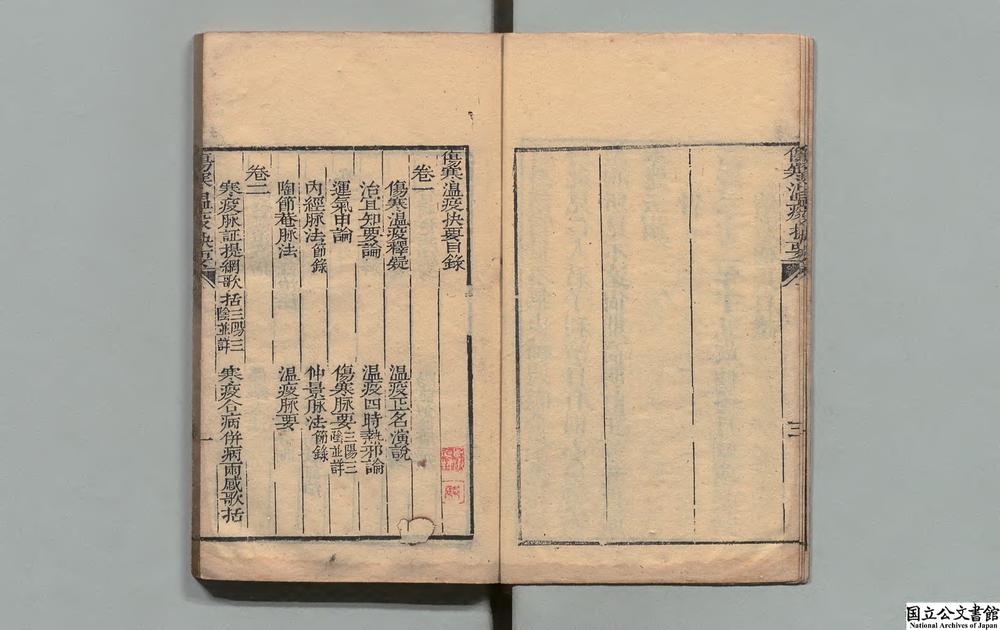 傷寒溫疫抉要
三
傷寒溫疫抉要目錄
卷一
傷寒溫疫釋疑
溫疫正名演說
治宜知要論
溫疫四時熱邪論
運氣申論
傷寒脉要三陽三陰並詳
內經脉法節錄
仲景脉法節錄
陶節菴脉法
溫疫脉要
卷二
寒疫脉証提綱歌括三陽三陰並詳
寒疫合病併病兩感歌括
傷寒溫疫抉要
一
国立公文書館
National Archives of Japan